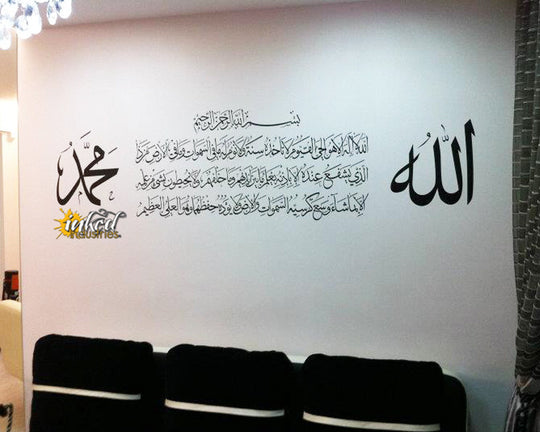 الله
بسم الله الرحمن الرحيم
الله لا إله إلا هو الحي القيوم لا تأخذه سنة ولا نوم له ما في السموات وما في الأرض من ذا
الذي يشفع عنده إلا بإذنه يعلم ما بين أيديهم وما خلفهم ولا يحيطون بشيء من علمه
إلا بما شاء وسع كرسيه السموات والأرض ولا يؤده حفظهما وهو العلي العظيم
محمد
inked
industries